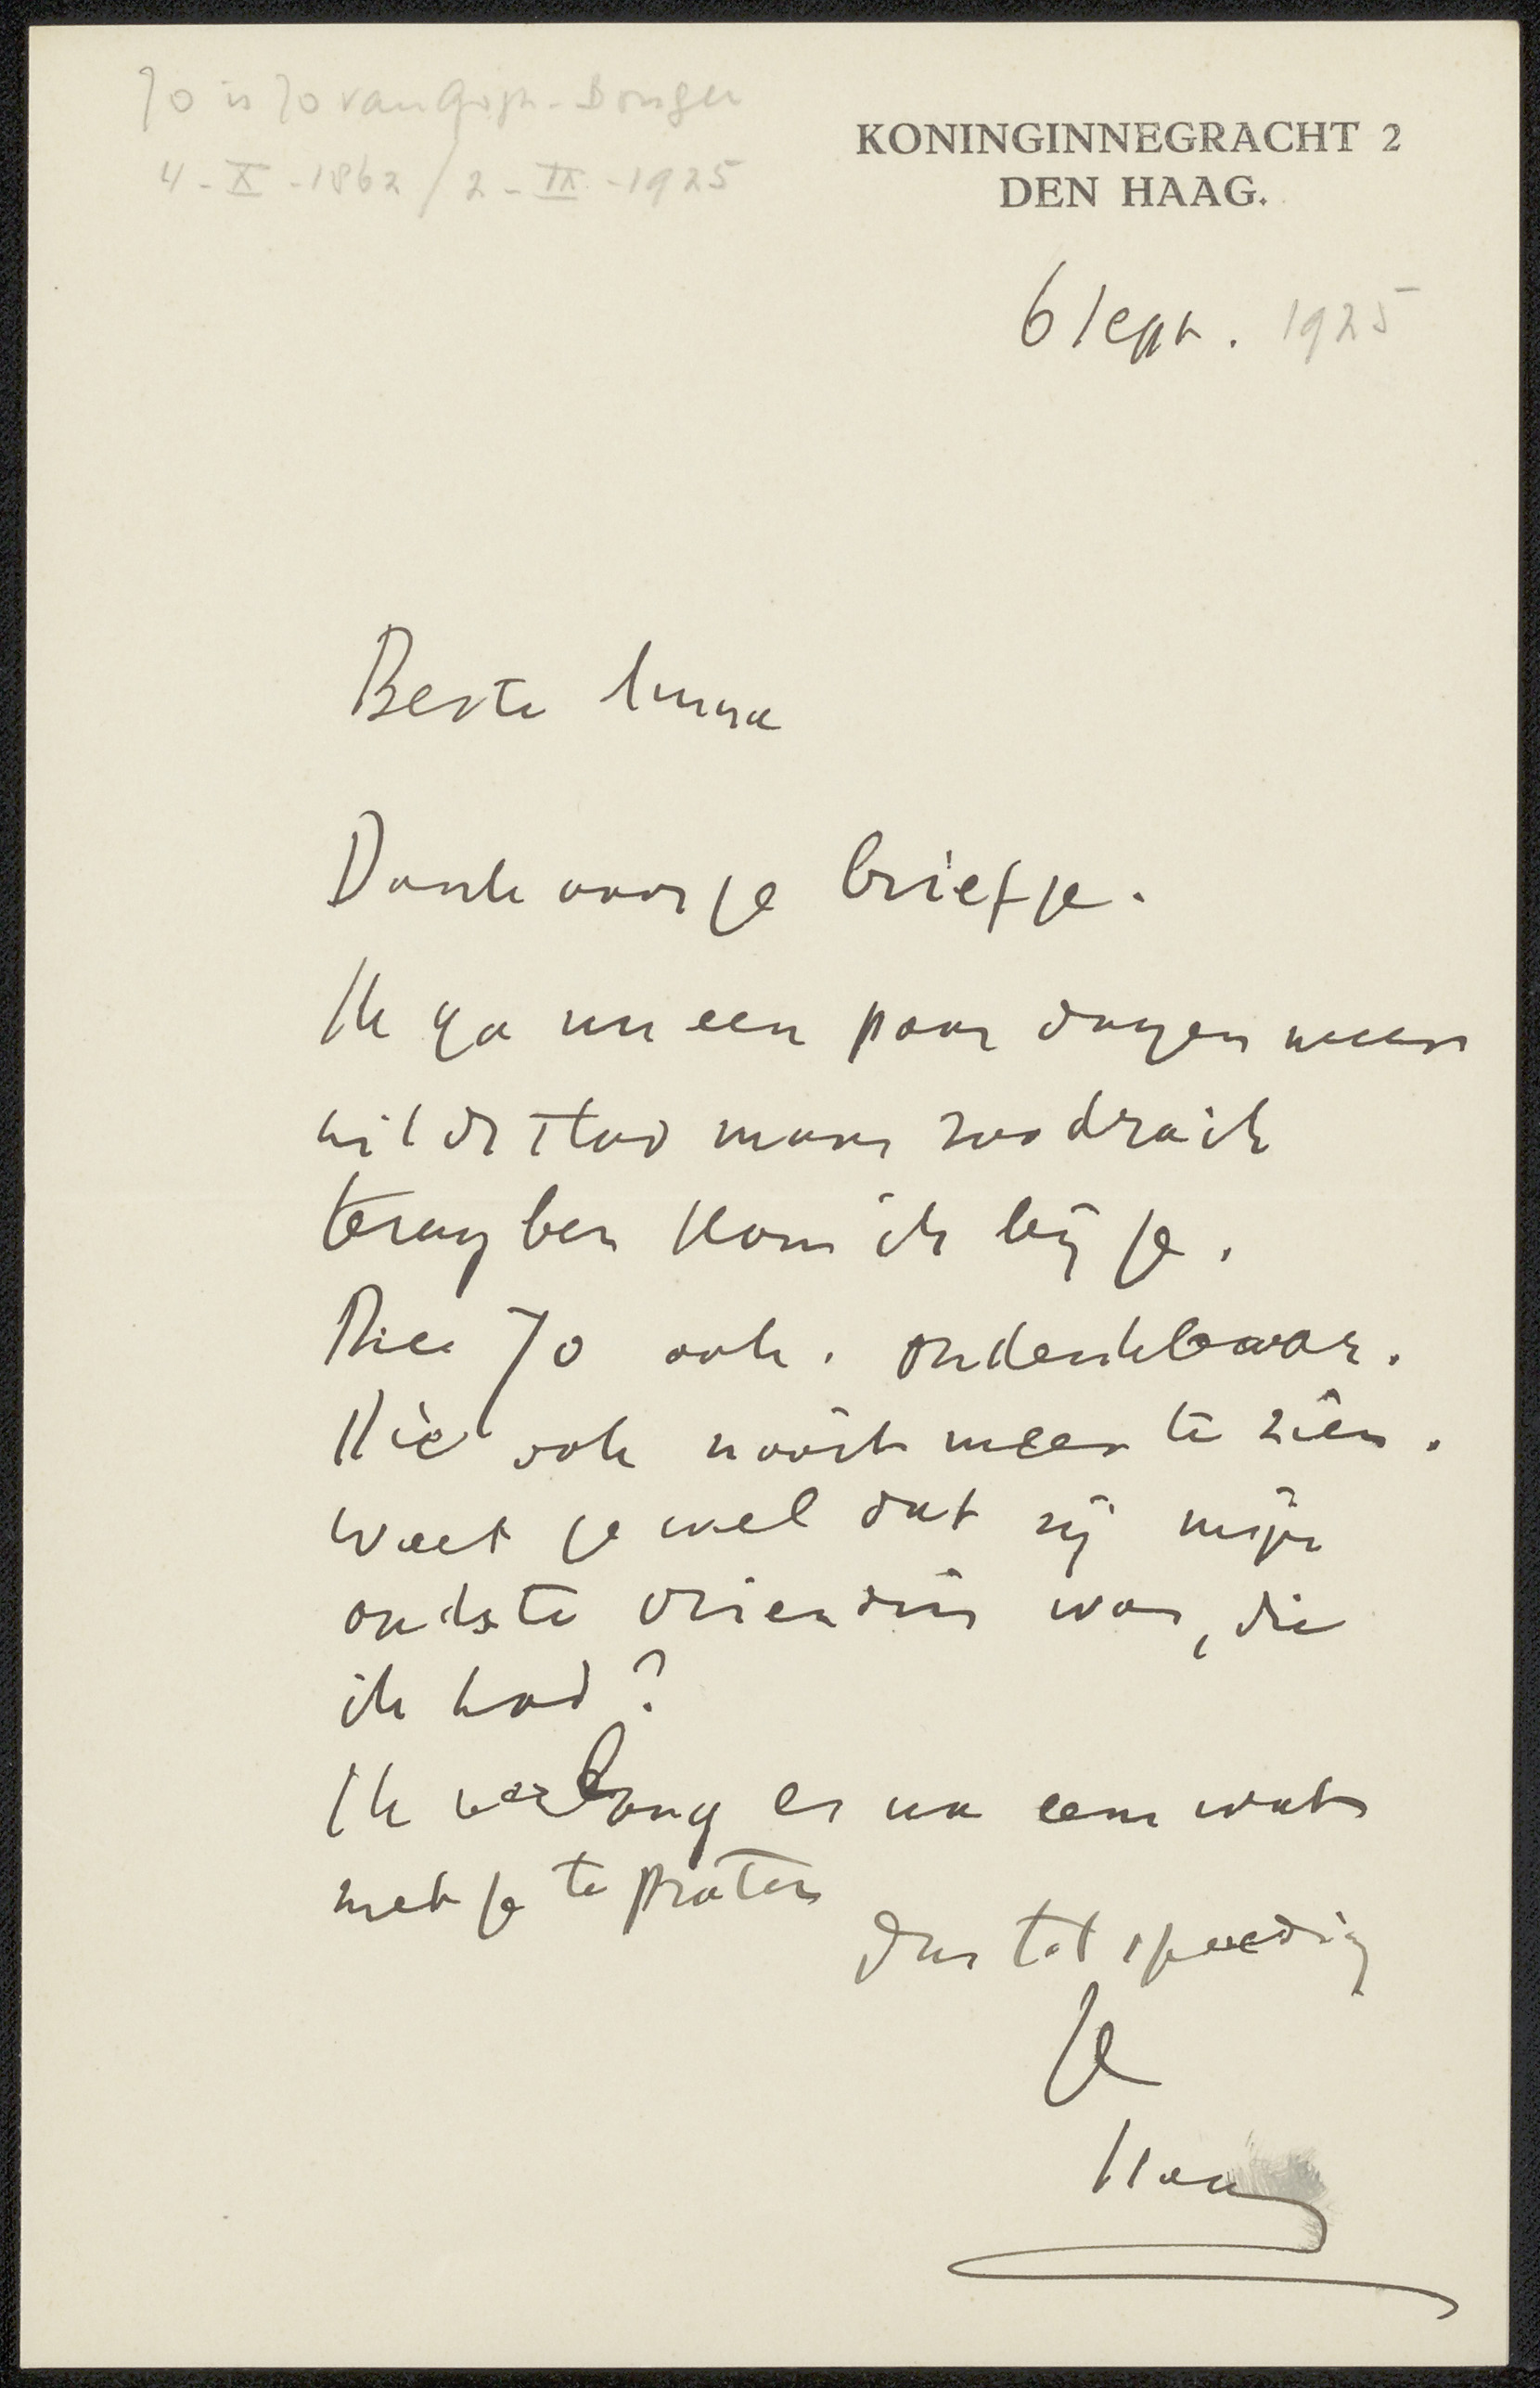 Jo is Jo van Gogh-Bonger
4-X-1862 / 2-IX-1925
KONINGINNEGRACHT 2
DEN HAAG.
6 Sept. 1925
Beste Anna
Dank voor je briefje.
Ik ga nu een paar dagen weer
uit de stad maar zoodra ik
terug ben kom ik bij je.
Die Jo ook. ondenkbaar.
Die ook nooit meer te zien.
Weet je wel dat zij mijn
oudste vriendin was, die
ik had?
Ik verlang er na eens wat
met je te praten
dus tot spoedig
Je